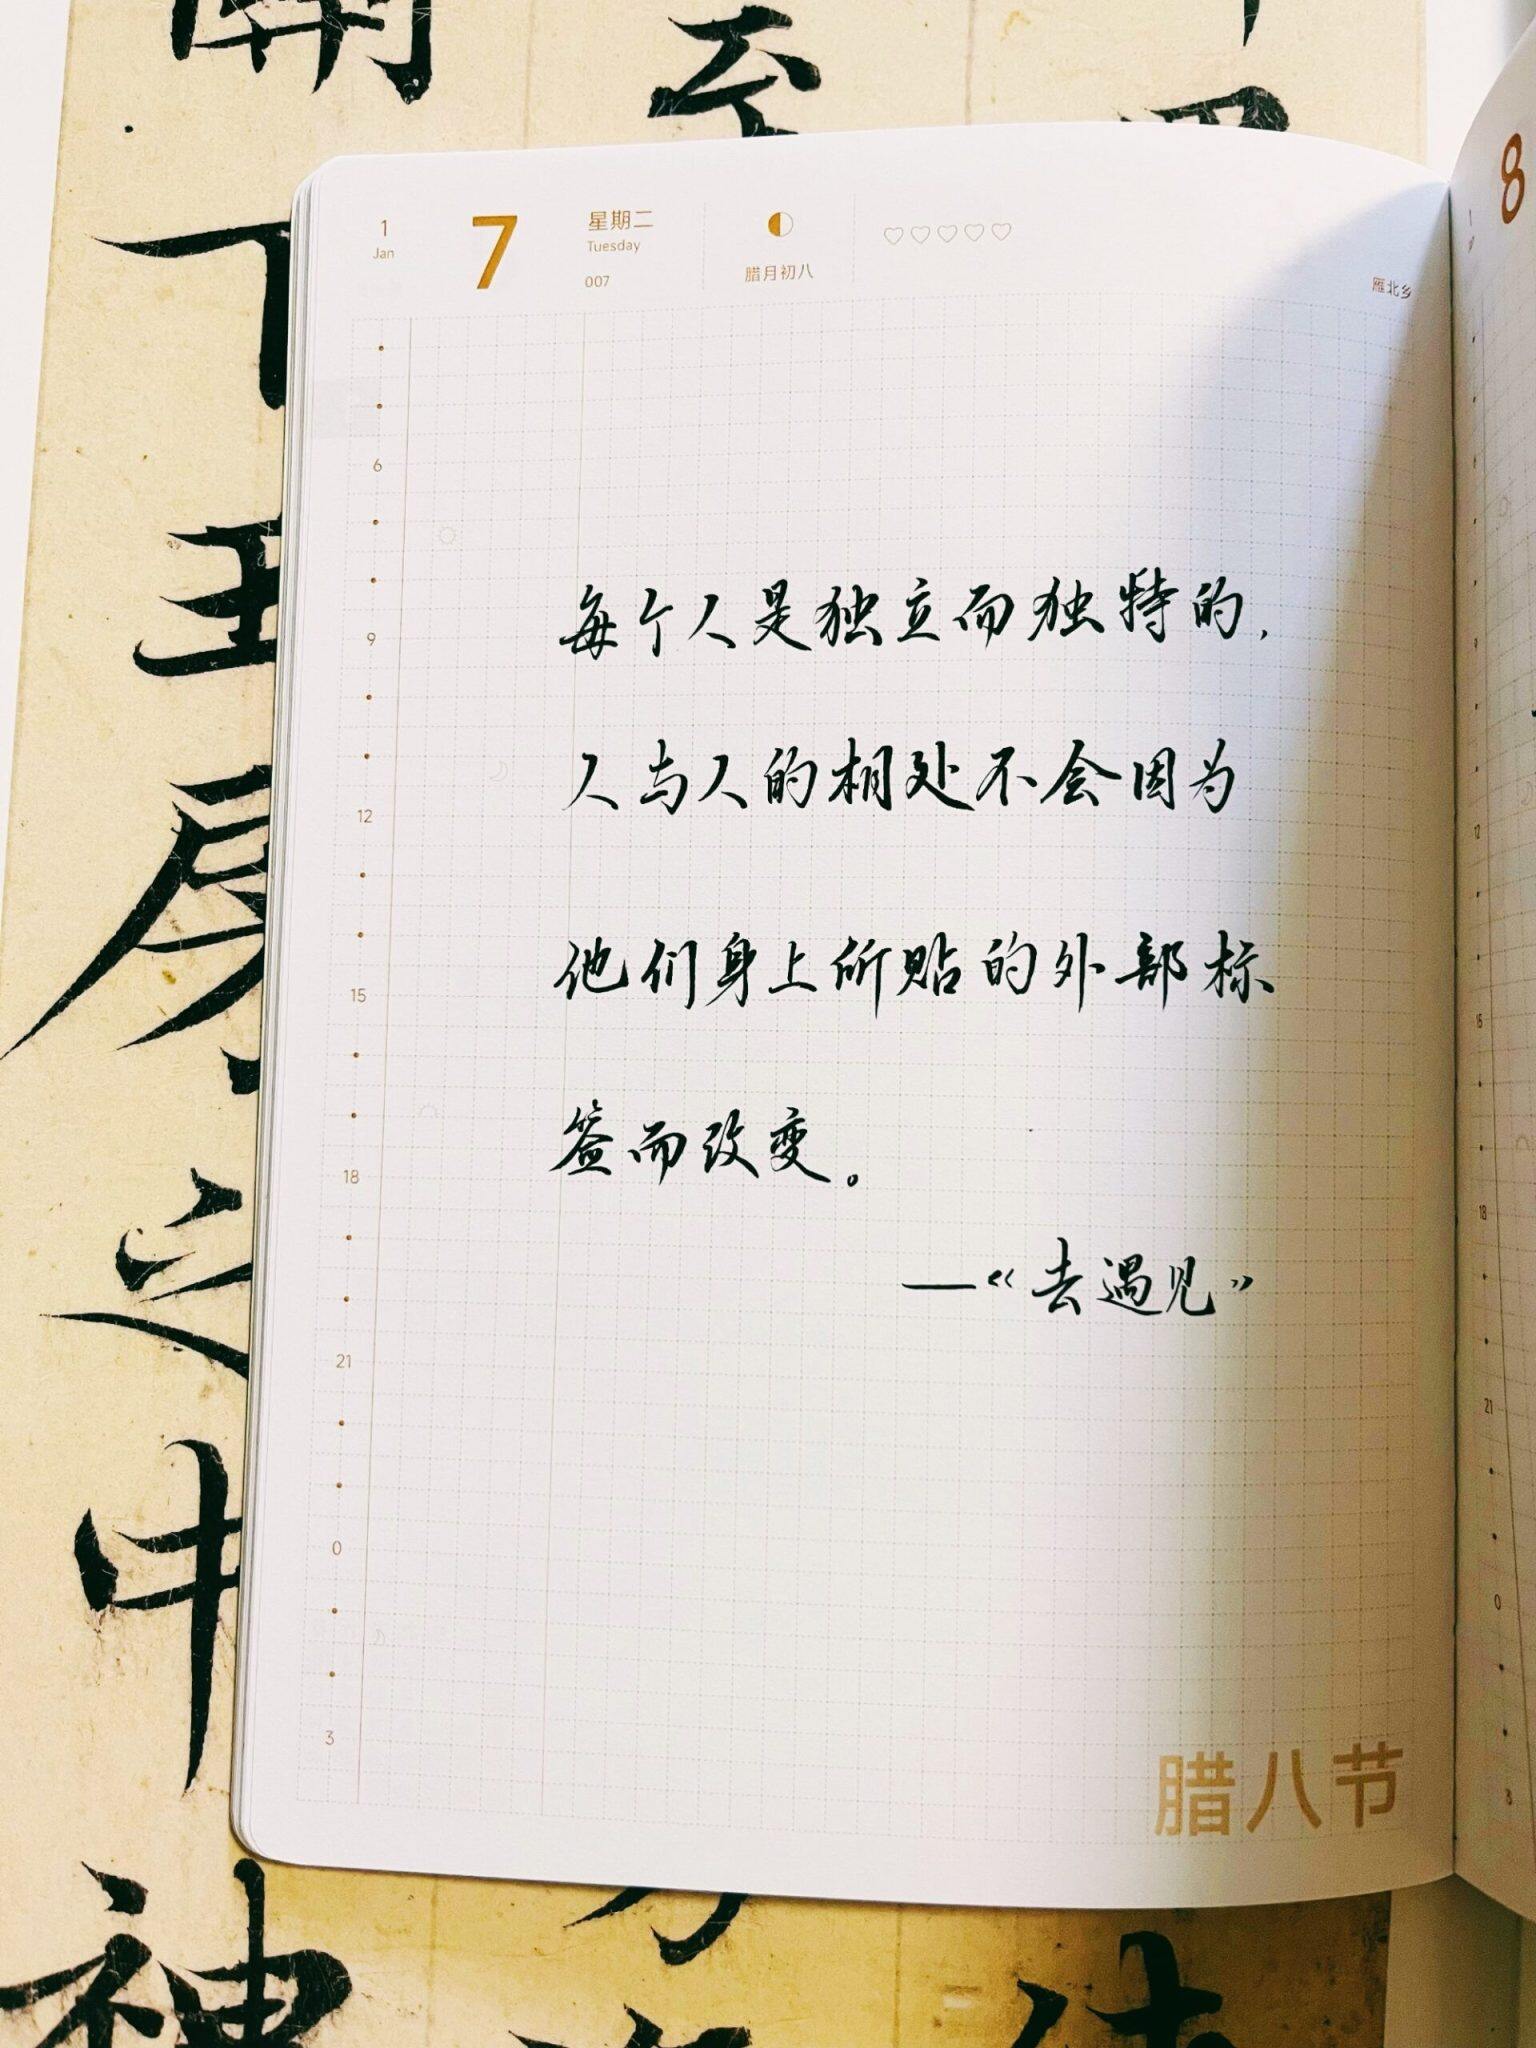 1
Jan
7
星期二
Tuesday
007
腊月初八
雁北乡
6
9
12
15
18
21
0
3
每个人是独立而独特的，
人与人的相处不会因为
他们身上所贴的外部标
签而改变。
—《去遇见》
腊八节
8
12
15
18
21
0
至
下
之
中
神